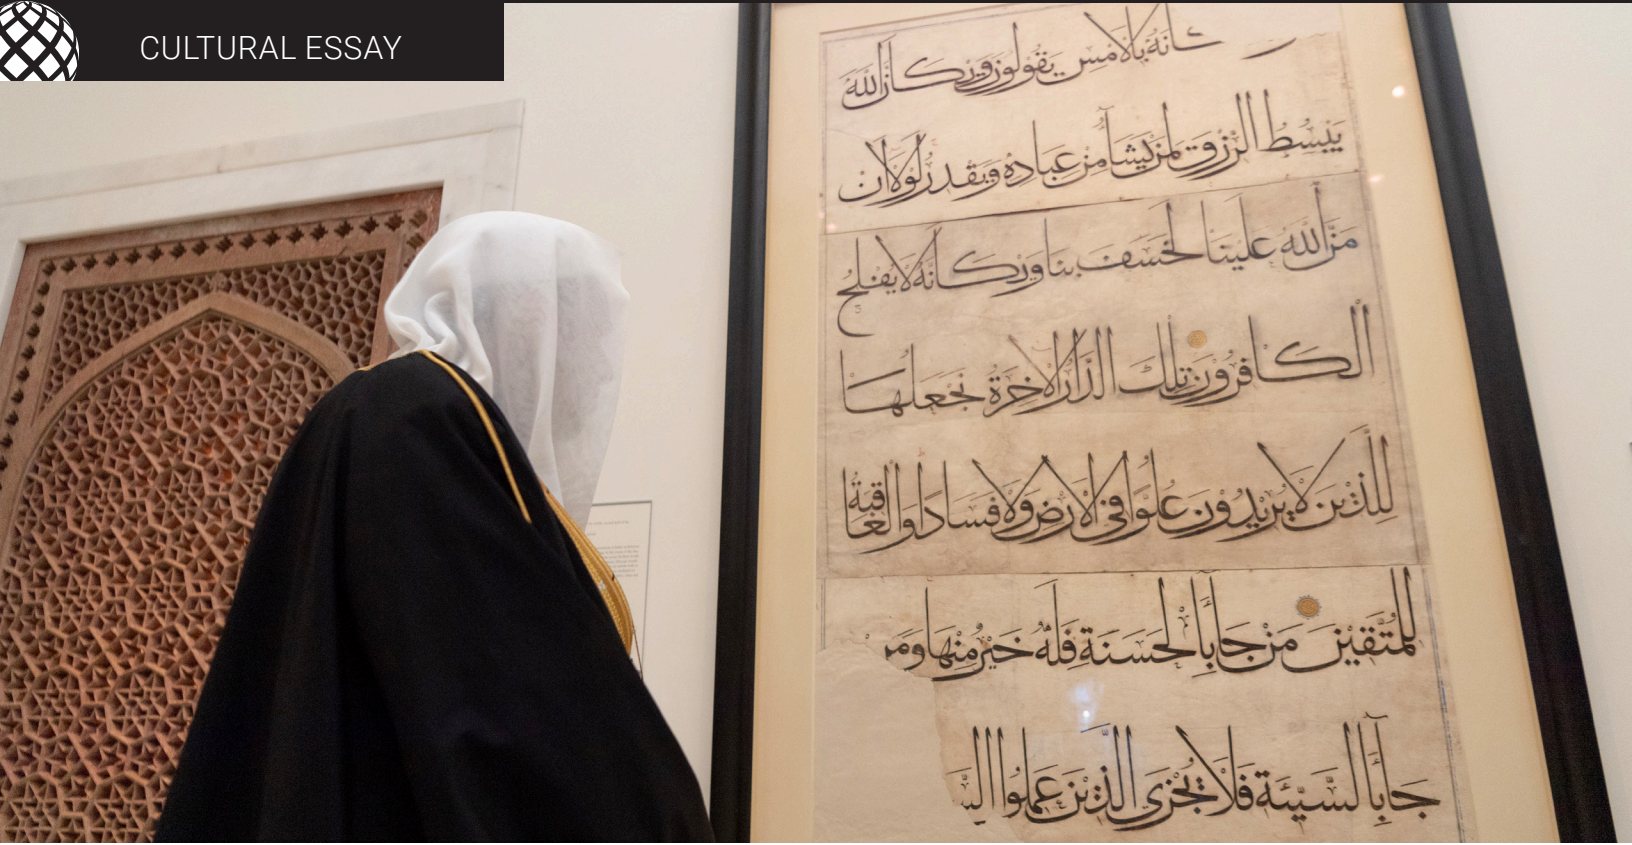 CULTURAL ESSAY
كانه بالامس يقولون ويكان الله
يبسط الرزق لمن يشا من عباده ويقدر لولا ان
من الله علينا لخسف بنا ويكانه لا يفلح
الكافرون تلك الدار الاخرة نجعلها
للذين لا يريدون علوا في الارض ولا فسادا والعاقبة
للمتقين من جا بالحسنة فله خير منها ومن
جا بالسيئة فلا يجزى الذين عملوا